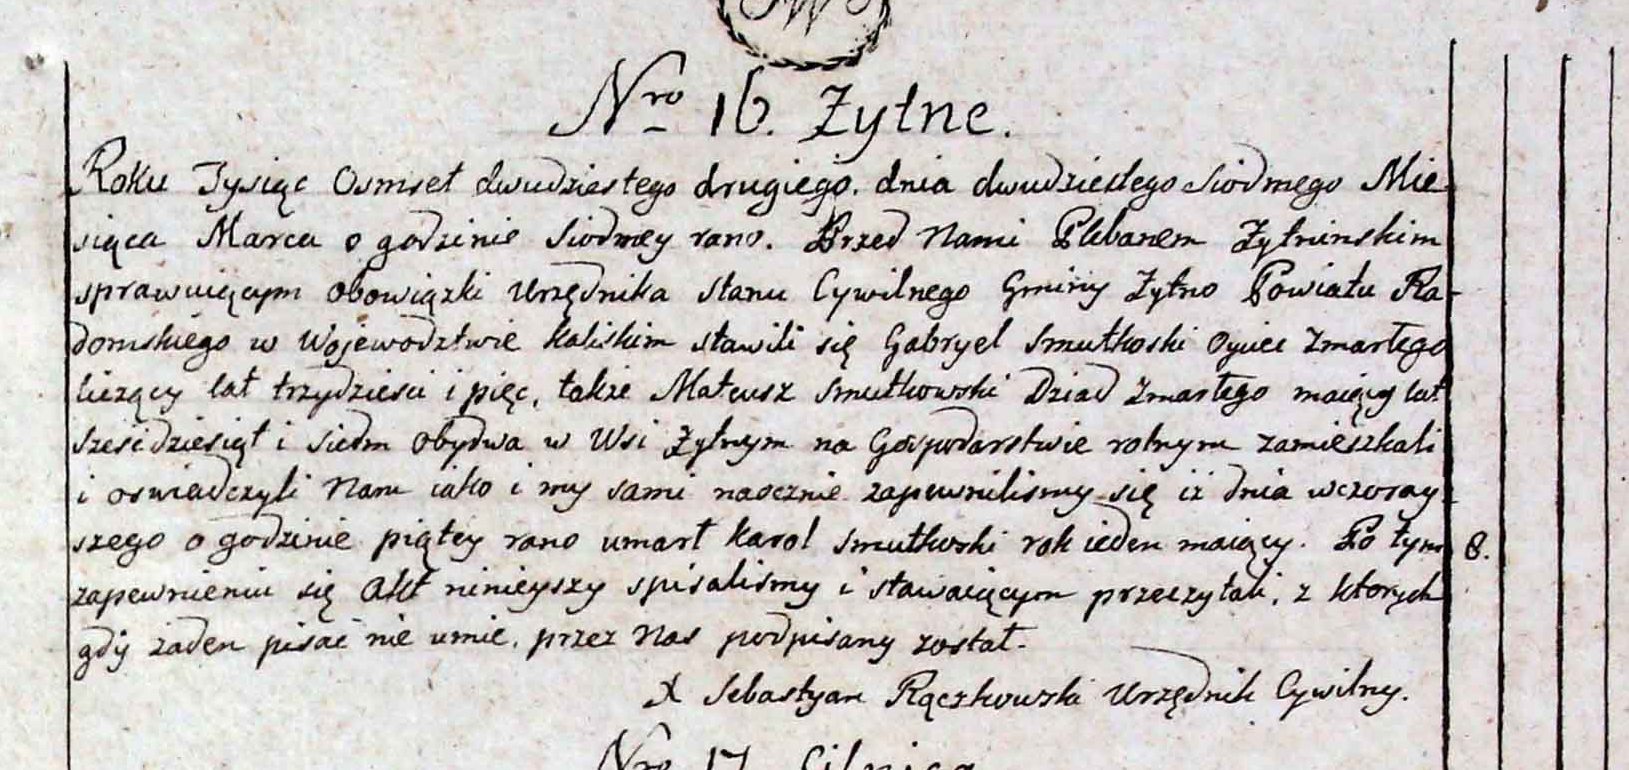 W
Nro 16. Żytne.
Roku Tysiąc Osmset dwudziestego drugiego. dnia dwudziestego siodmego Mie-
siąca Marca o godzinie siodmey rano. Przed Nami Plebanem Żytninskim
sprawuiącym obowiązki Urzędnika stanu Cywilnego Gminy Żytno Powiatu Ra-
domskiego w Wojewodztwie kaliskim stawili się Gabryel Smutkoski Oyciec Zmarłego
liczący lat trzydziesci i pięc, także Mateusz Smutkowski Dziad Zmarłego maiący lat
szescdziesiąt i siedm obydwa w Wsi Żytnym na Gospodarstwie rolnym zamieszkali
i oswiadczyli Nam iako i my sami naocznie zapewnilismy się iż dnia wczoray-
szego o godzinie piątey rano umarł karol Smutkoski rok ieden maiący. Po tym 8.
zapewnieniu się Akt ninieyszy spisalismy i stawaiącym przeczytali, z ktorych
gdy żaden pisać nie umie, przez Nas podpisany został.
X Sebastyan Rączkowski Urzędnik Cywilny.
Nro 17. Silnica